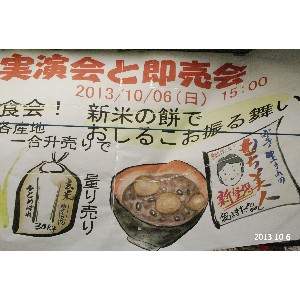 実演会と即売会
2013/10/06(日) 15:00
食会! 新米の餅で
おしるこお振る舞い
各産地
一合升売りで
量り売り
玄米
30kg
もち美人
新
2013 10 6